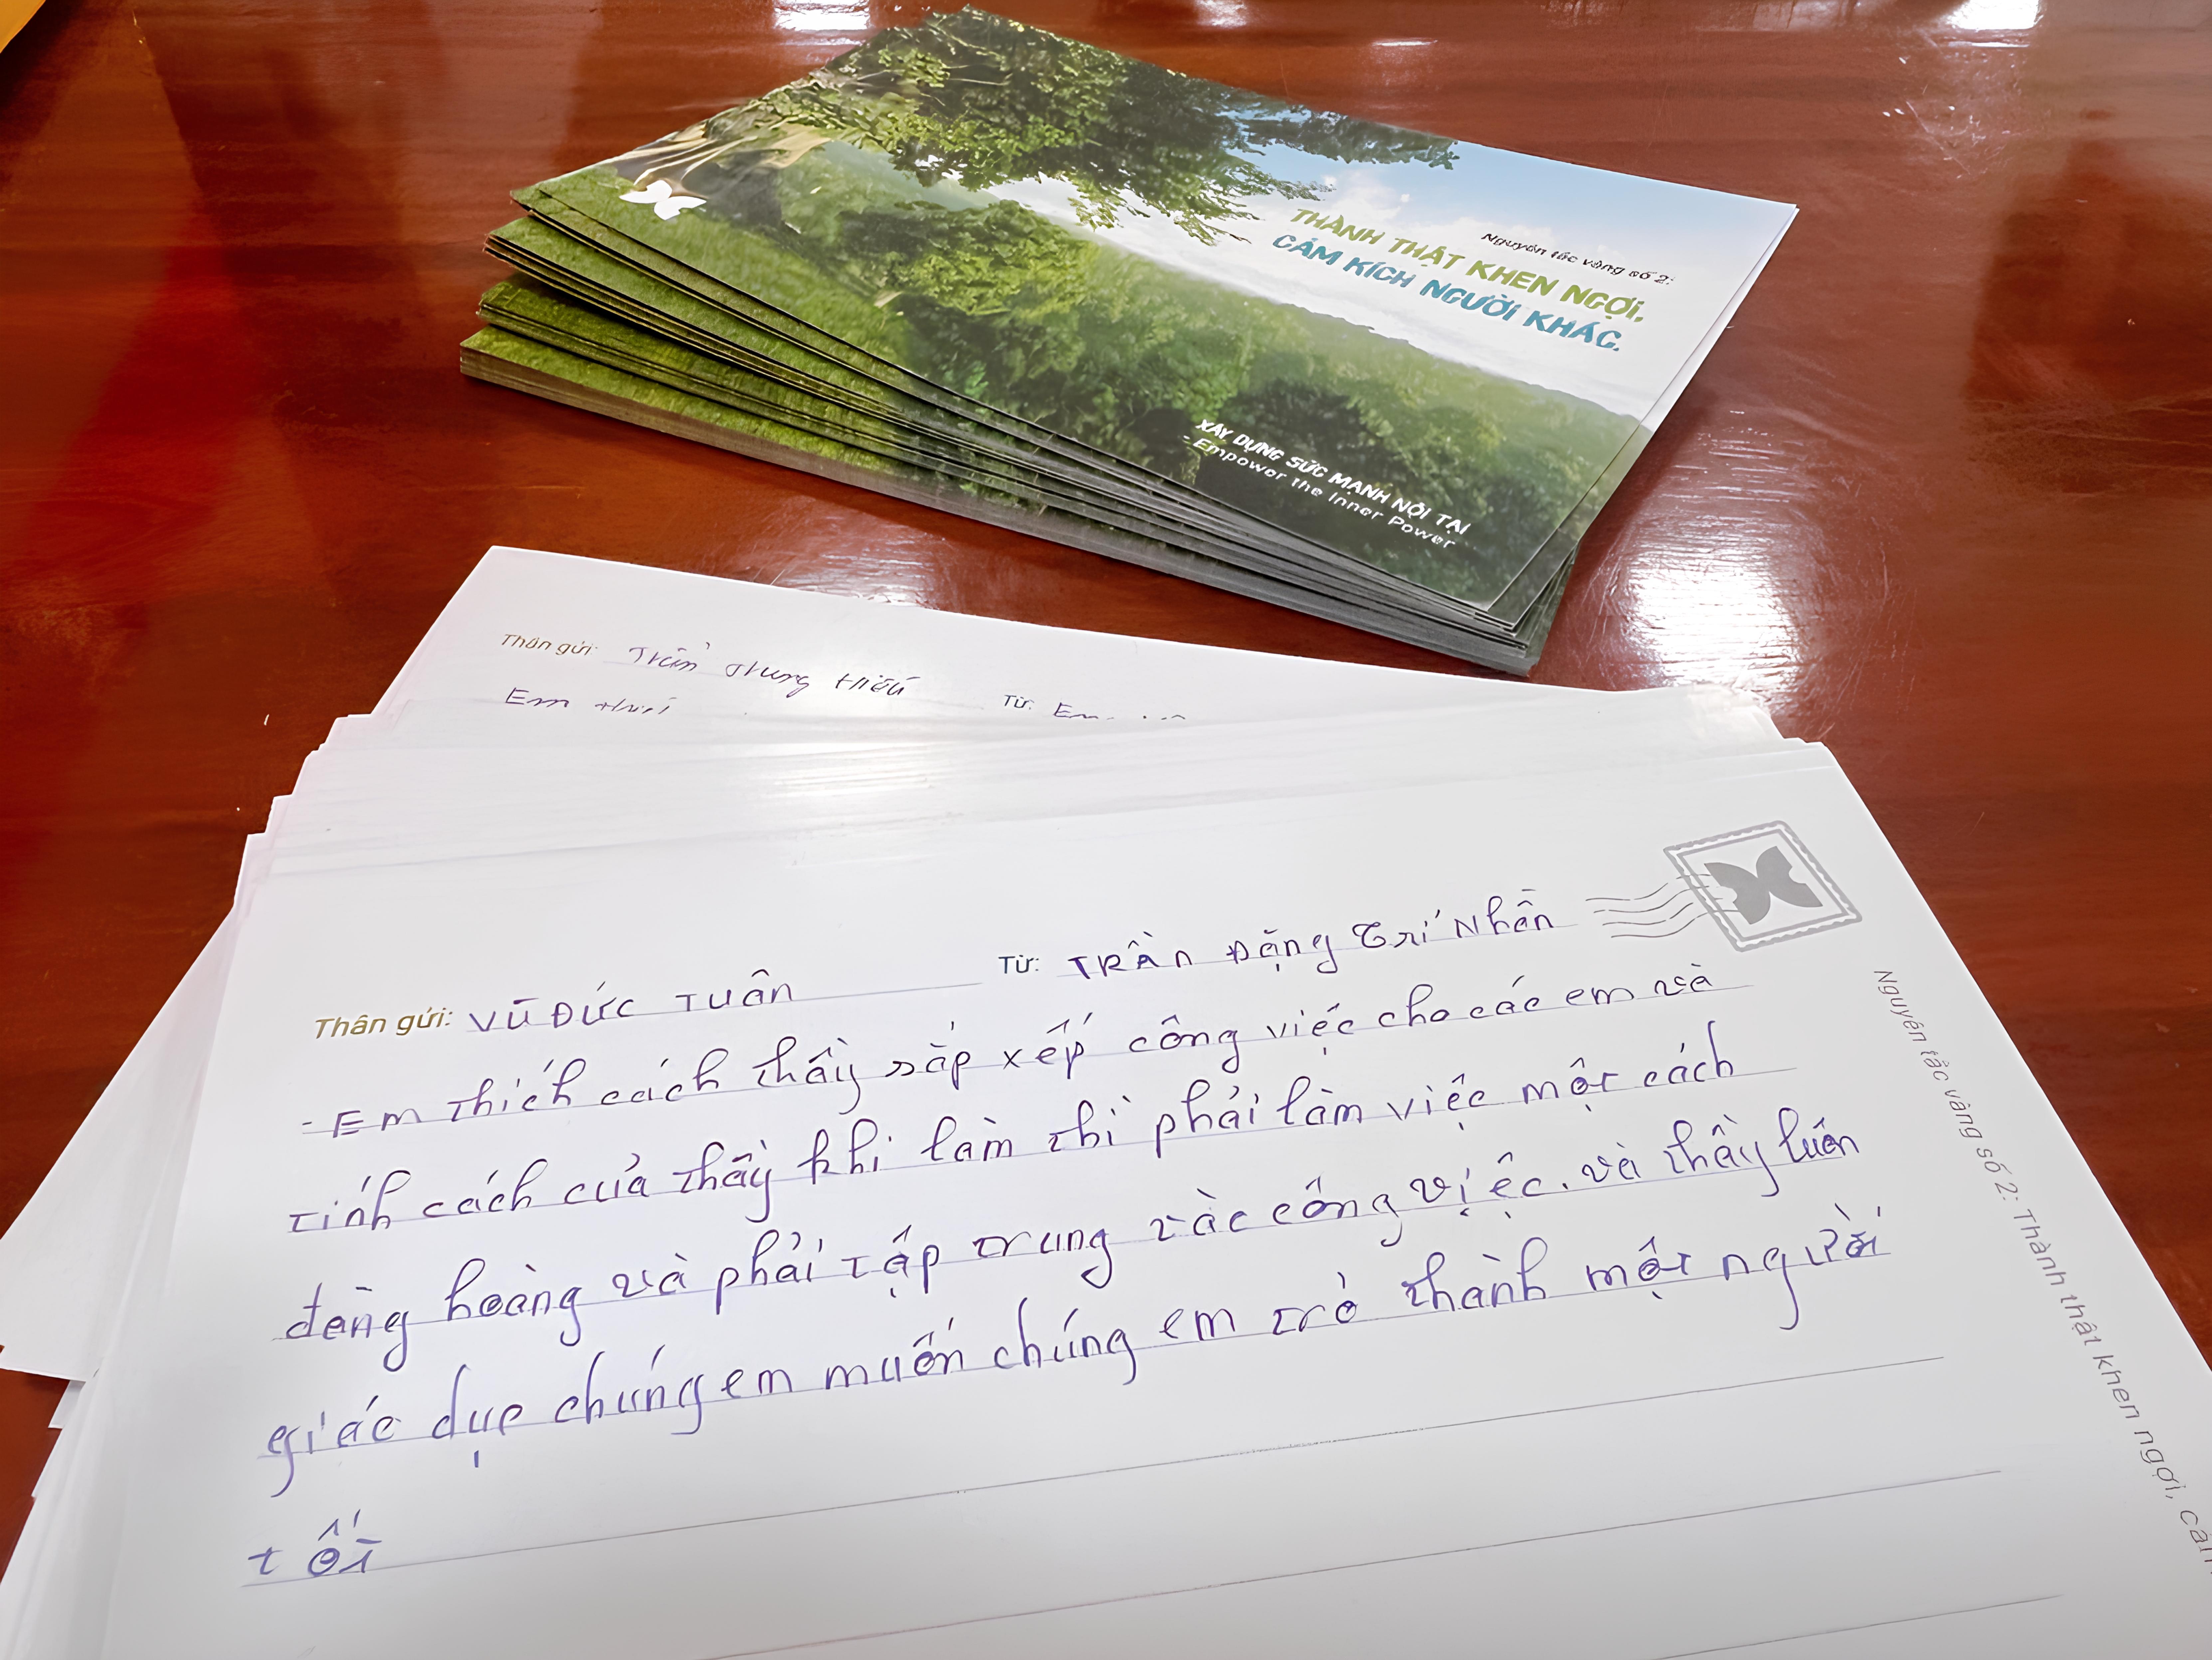 Nguyên tắc vàng số 2:
THÀNH THẬT KHEN NGỢI,
CẢM KÍCH NGƯỜI KHÁC.
XÂY DỰNG SỨC MẠNH NỘI TẠI
- Empower the Inner Power
Thân gửi: Trần Trung Hiếu Từ: Em
Em
Thân gửi: VŨ ĐỨC TUÂN Từ: TRẦN Đặng Trí Nhân
- Em thích cách thầy sắp xếp công việc cho các em và
tính cách của thầy khi làm thì phải làm việc một cách
đàng hoàng và phải tập trung vàc công việc. và thầy luôn
giác dục chúng em muốn chúng em trở thành một người
tốt
Nguyên tắc vàng số 2: Thành thật khen ngợi,